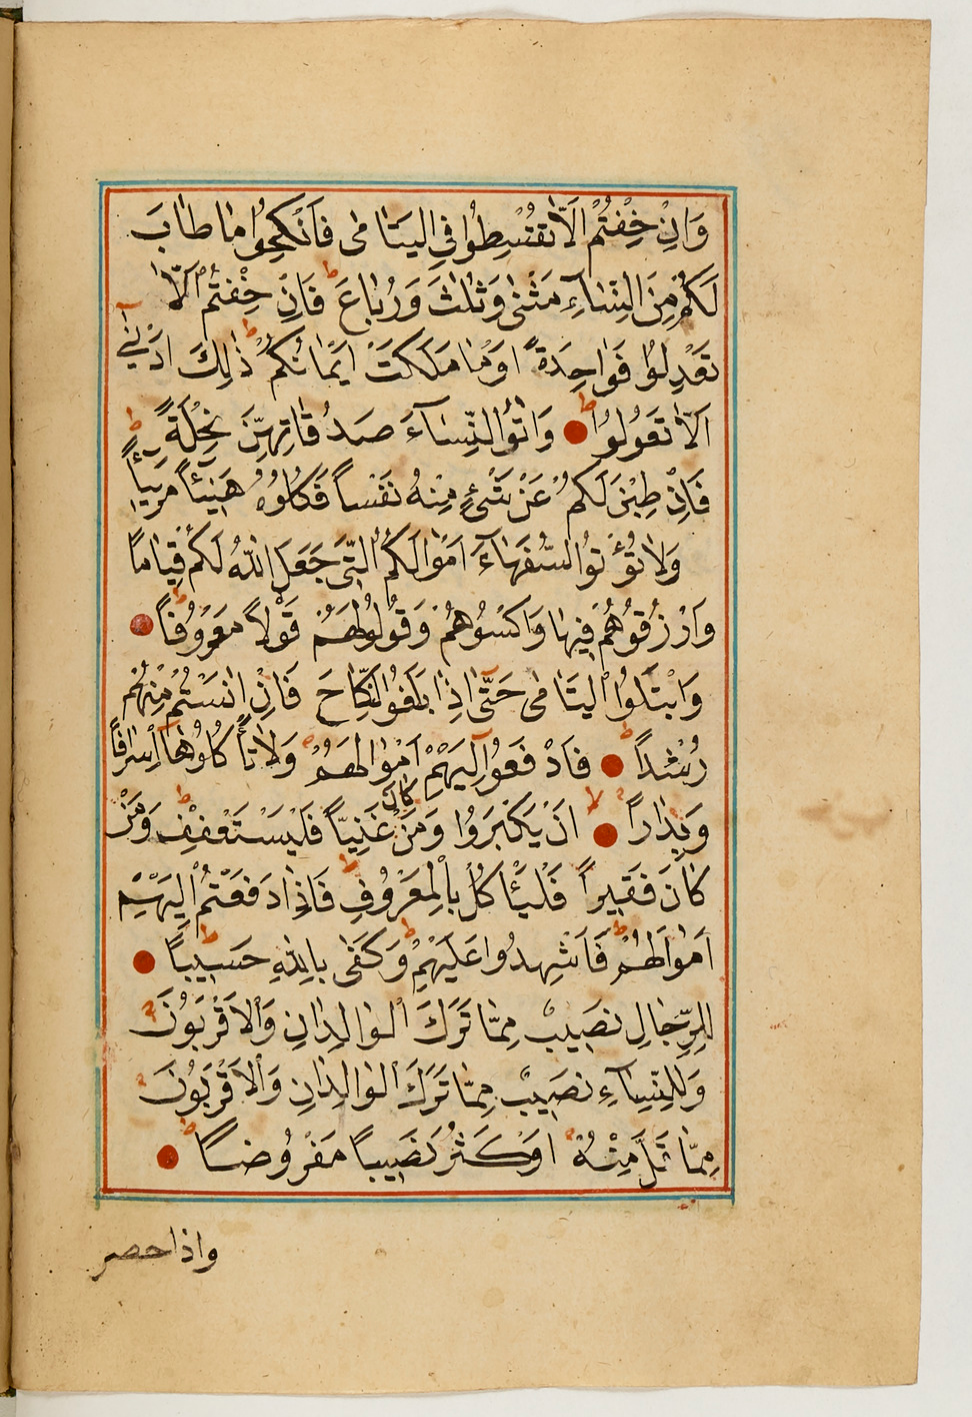 وَاِنْ خِفْتُمْ اَلَّا تُقْسِطُوا فِي الْيَتَامٰى فَانْكِحُوا مَا طَابَ
لَكُمْ مِنَ النِّسَآءِ مَثْنٰى وَثُلٰثَ وَرُبَاعَ ط فَاِنْ خِفْتُمْ اَلَّا
تَعْدِلُوا فَوَاحِدَةً اَوْ مَا مَلَكَتْ اَيْمَانُكُمْ ط ذٰلِكَ اَدْنٰىٓ
اَلَّا تَعُولُوا ط وَاٰتُوا النِّسَآءَ صَدُقَاتِهِنَّ نِحْلَةً ط
فَاِنْ طِبْنَ لَكُمْ عَنْ شَىْءٍ مِنْهُ نَفْساً فَكُلُوهُ هَنِيٓئاً مَرِيٓئاً
وَلَا تُؤْتُوا السُّفَهَآءَ اَمْوَالَكُمُ الَّتِى جَعَلَ اللّٰهُ لَكُمْ قِيَاماً
وَارْزُقُوهُمْ فِيهَا وَاكْسُوهُمْ وَقُولُوا لَهُمْ قَوْلاً مَعْرُوفاً ط
وَابْتَلُوا الْيَتَامٰى حَتّٰىٓ اِذَا بَلَغُوا النِّكَاحَ فَاِنْ اٰنَسْتُمْ مِنْهُمْ
رُشْداً ط فَادْفَعُوٓا اِلَيْهِمْ اَمْوَالَهُمْ وَلَا تَأْكُلُوهَآ اِسْرَافاً
وَبِدَاراً لا اَنْ يَكْبَرُوا وَمَنْ كَانَ غَنِيّاً فَلْيَسْتَعْفِفْ ط وَمَنْ
كَانَ فَقِيراً فَلْيَأْكُلْ بِالْمَعْرُوفِ ط فَاِذَا دَفَعْتُمْ اِلَيْهِمْ
اَمْوَالَهُمْ ط فَاَشْهِدُوا عَلَيْهِمْ ط وَكَفٰى بِاللّٰهِ حَسِيباً ط
لِلرِّجَالِ نَصِيبٌ مِمَّا تَرَكَ الْوَالِدَانِ وَالْاَقْرَبُونَ
وَلِلنِّسَآءِ نَصِيبٌ مِمَّا تَرَكَ الْوَالِدَانِ وَالْاَقْرَبُونَ
مِمَّا قَلَّ مِنْهُ اَوْ كَثُرَ نَصِيباً مَفْرُوضاً ط
واذا حضر